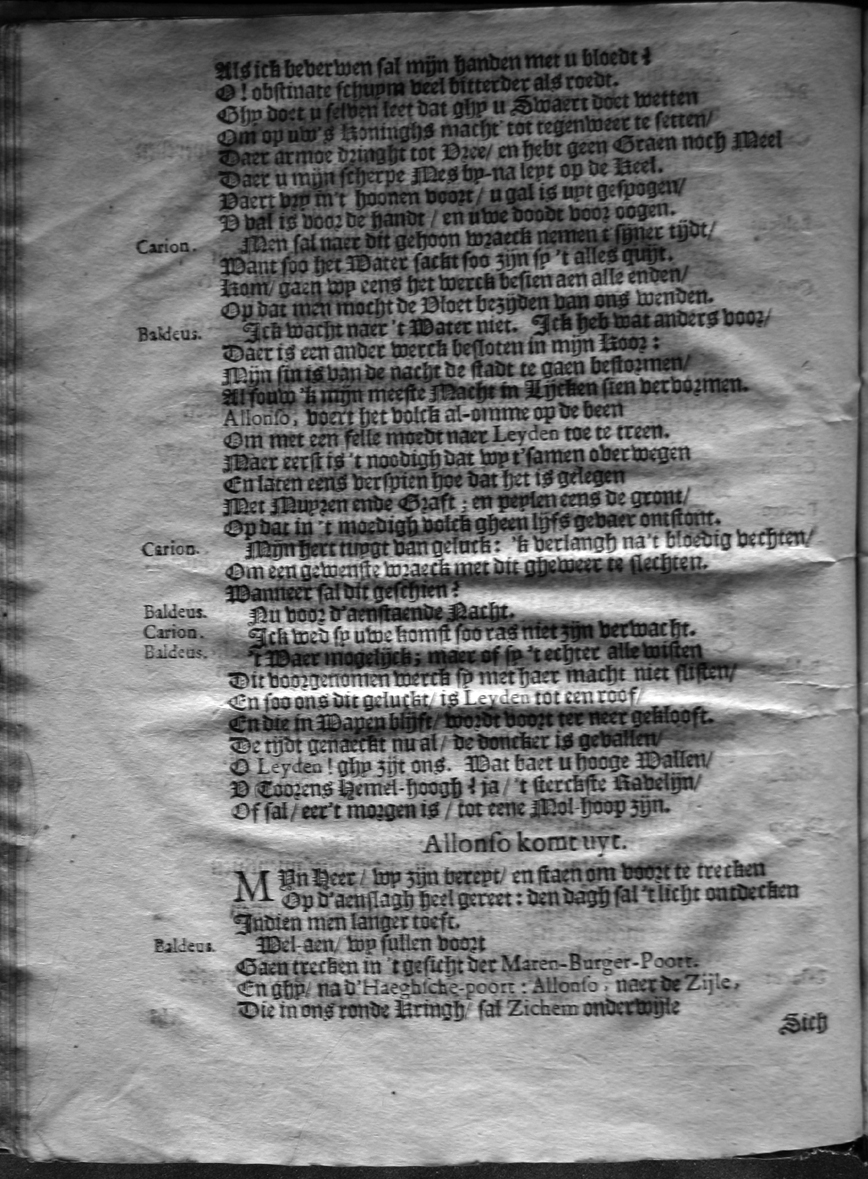 Als ick beverwen sal mijn handen met u bloedt?
O! obstinate schuym veel bitterder als roedt.
Ghy doet u selven leet dat ghy u Swaert doet wetten
Om op uw's Koninghs macht tot tegenweer te setten/
Daer armoe dringht tot Vree/ en hebt geen Graen noch Meel
Daer u mijn scherpe Mes by-na leyt op de Keel.
Vaert vry in't hoonen voort/ u gal is uyt gespogen/
V val is voor de handt/ en uwe doodt voor oogen.
Carion. Men sal naer dit gehoon wraeck nemen t'sijner tijdt/
Want soo het Water sackt soo zijn sy 't alles quijt.
Kom/ gaen wy eens het werck besien aen alle enden/
Op dat men mocht de Vloet bezijden van ons wenden.
Baldeus. Ick wacht naer 't Water niet. Ick heb wat anders voor/
Daer is een ander werck besloten in mijn Koor:
Mijn sin is van de nacht de stadt te gaen bestormen/
Al souw 'k mijn meeste Macht in Lijcken sien vervormen.
Allonso, voert het volck al-omme op de been
Om met een felle moedt naer Leyden toe te treen.
Maer eerst is 't noodigh dat wy t'samen overwegen
En laten eens verspien hoe dat het is gelegen
Met Muyren ende Graft; en peylen eens de gront/
Op dat in 't moedigh volck gheen lijfs gevaer ontstont.
Carion. Mijn hert tuygt van geluck: 'k verlangh na't bloedig vechten/
Om een gewenste wraeck met dit gheweer te slechten.
Wanneer sal dit geschien?
Baldeus. Nu voor d'aenstaende Nacht.
Carion. Ick wed sy uwe komst soo ras niet zijn verwacht.
Baldeus. 't Waer mogelijck; maer of sy 't echter alle wisten
Dit voorgenomen werck sy met haer macht niet slisten/
En soo ons dit geluckt/ is Leyden tot een roof/
En die in Wapen blijft/ wordt voort ter neer geklooft.
De tijdt genaeckt nu al/ de doncker is gevallen/
O Leyden! ghy zijt ons. Wat baet u hooge Wallen/
V Toorens Hemel-hoogh? ja/ 't sterckste Ravelijn/
Of sal/ eer't morgen is/ tot eene Mol-hoop zijn.
Allonso komt uyt.
MYn Heer/ wy zijn bereyt/ en staen om voort te trecken
Op d'aenslagh heel gereet: den dagh sal 't licht ontdecken
Indien men langer toeft.
Baldeus. Wel-aen/ wy sullen voort
Gaen trecken in 't gesicht der Maren-Burger-Poort.
En ghy/ na d'Haeghsche-poort: Allonso, naer de Zijle,
Die in ons ronde Kringh/ sal Zichem onderwijle
Sich